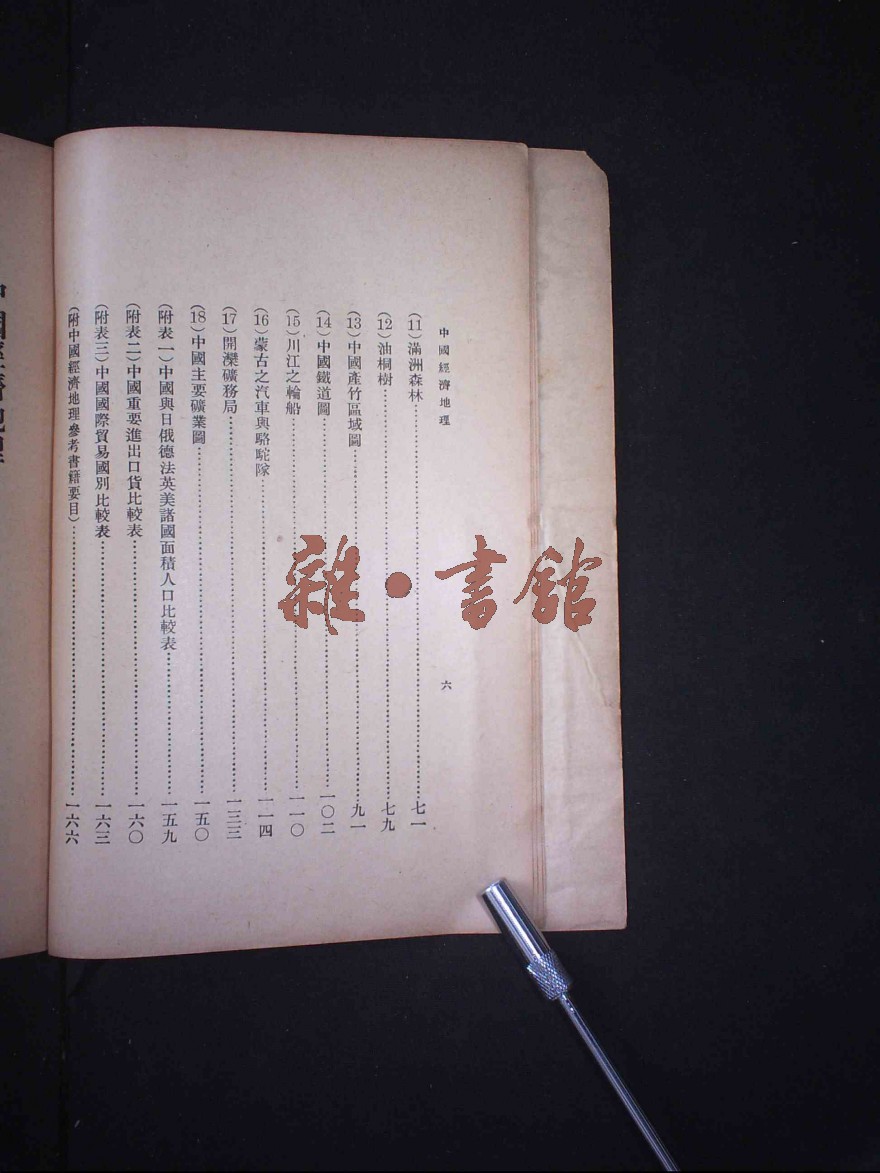 中國經濟地理
六
(11)滿洲森林……七一
(12)油桐樹……七九
(13)中國產竹區域圖……九一
(14)中國鐵道圖……一〇二
(15)川江之輪船……一一〇
(16)蒙古之汽車與駱駝隊……一一四
(17)開灤礦務局……一三三
(18)中國主要礦業圖……一五〇
(附表一)中國與日俄德法英美諸國面積人口比較表……一五九
(附表二)中國重要進出口貨比較表……一六〇
(附表三)中國國際貿易國別比較表……一六三
(附中國經濟地理參考書籍要目)……一六六
雜·書館